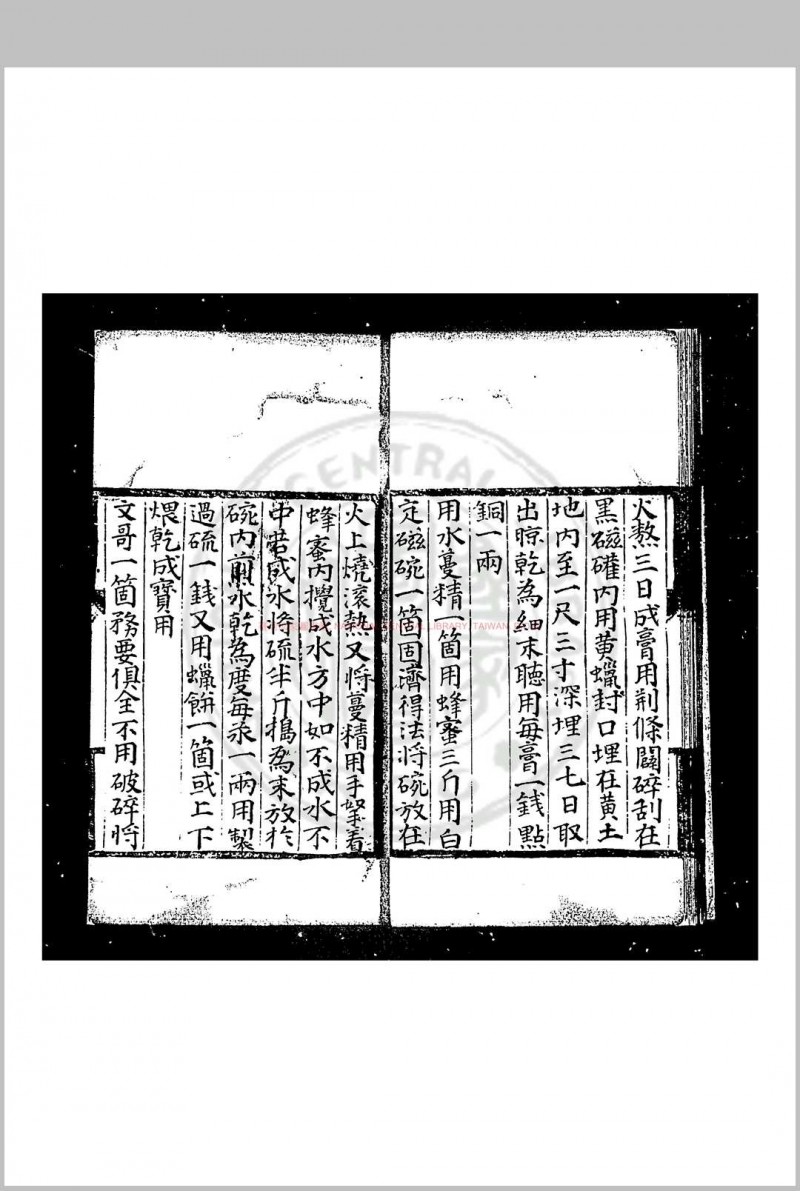 火熬三日成膏用荊條闢碎刮在
黑磁礶内用黄蠟封口埋在黄土
地内至一尺三寸深埋三七日取
出晾乾為細末聽用每膏一錢點
銅一兩
用水蔓精一箇用蜂蜜三斤用白
定磁碗一箇固濟得法將碗放在
火上燒滚熱又將蔓精用手拏看
蜂蜜内攪成水方中如不成水不
中 成水將硫半斤搗為末放於
碗内煎水乾為度每汞一兩用製
過硫一錢又用蠟餅一箇或上下
煨乾成寳用
文哥一箇務要俱全不用破碎將
CENTRAL
LIBRARY, TAIWAN